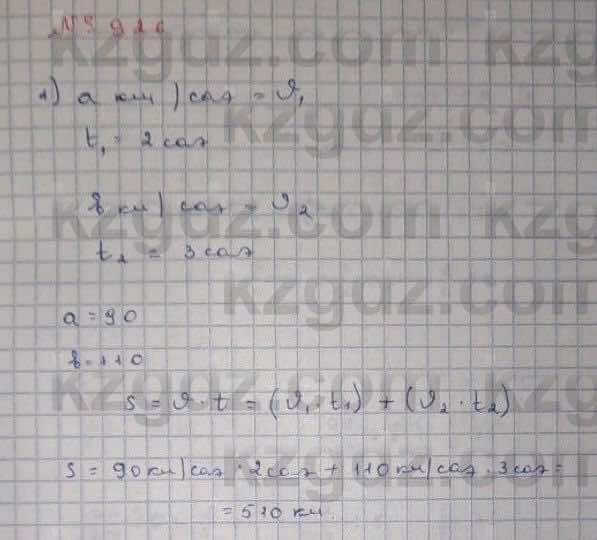 № 926
1) a км/сағ = υ₁
t₁ = 2 сағ
b км/сағ = υ₂
t₂ = 3 сағ
a = 90
b = 110
S = υ · t = (υ₁ · t₁) + (υ₂ · t₂)
S = 90 км/сағ · 2 сағ + 110 км/сағ · 3 сағ =
= 510 км.
kzgdz.com